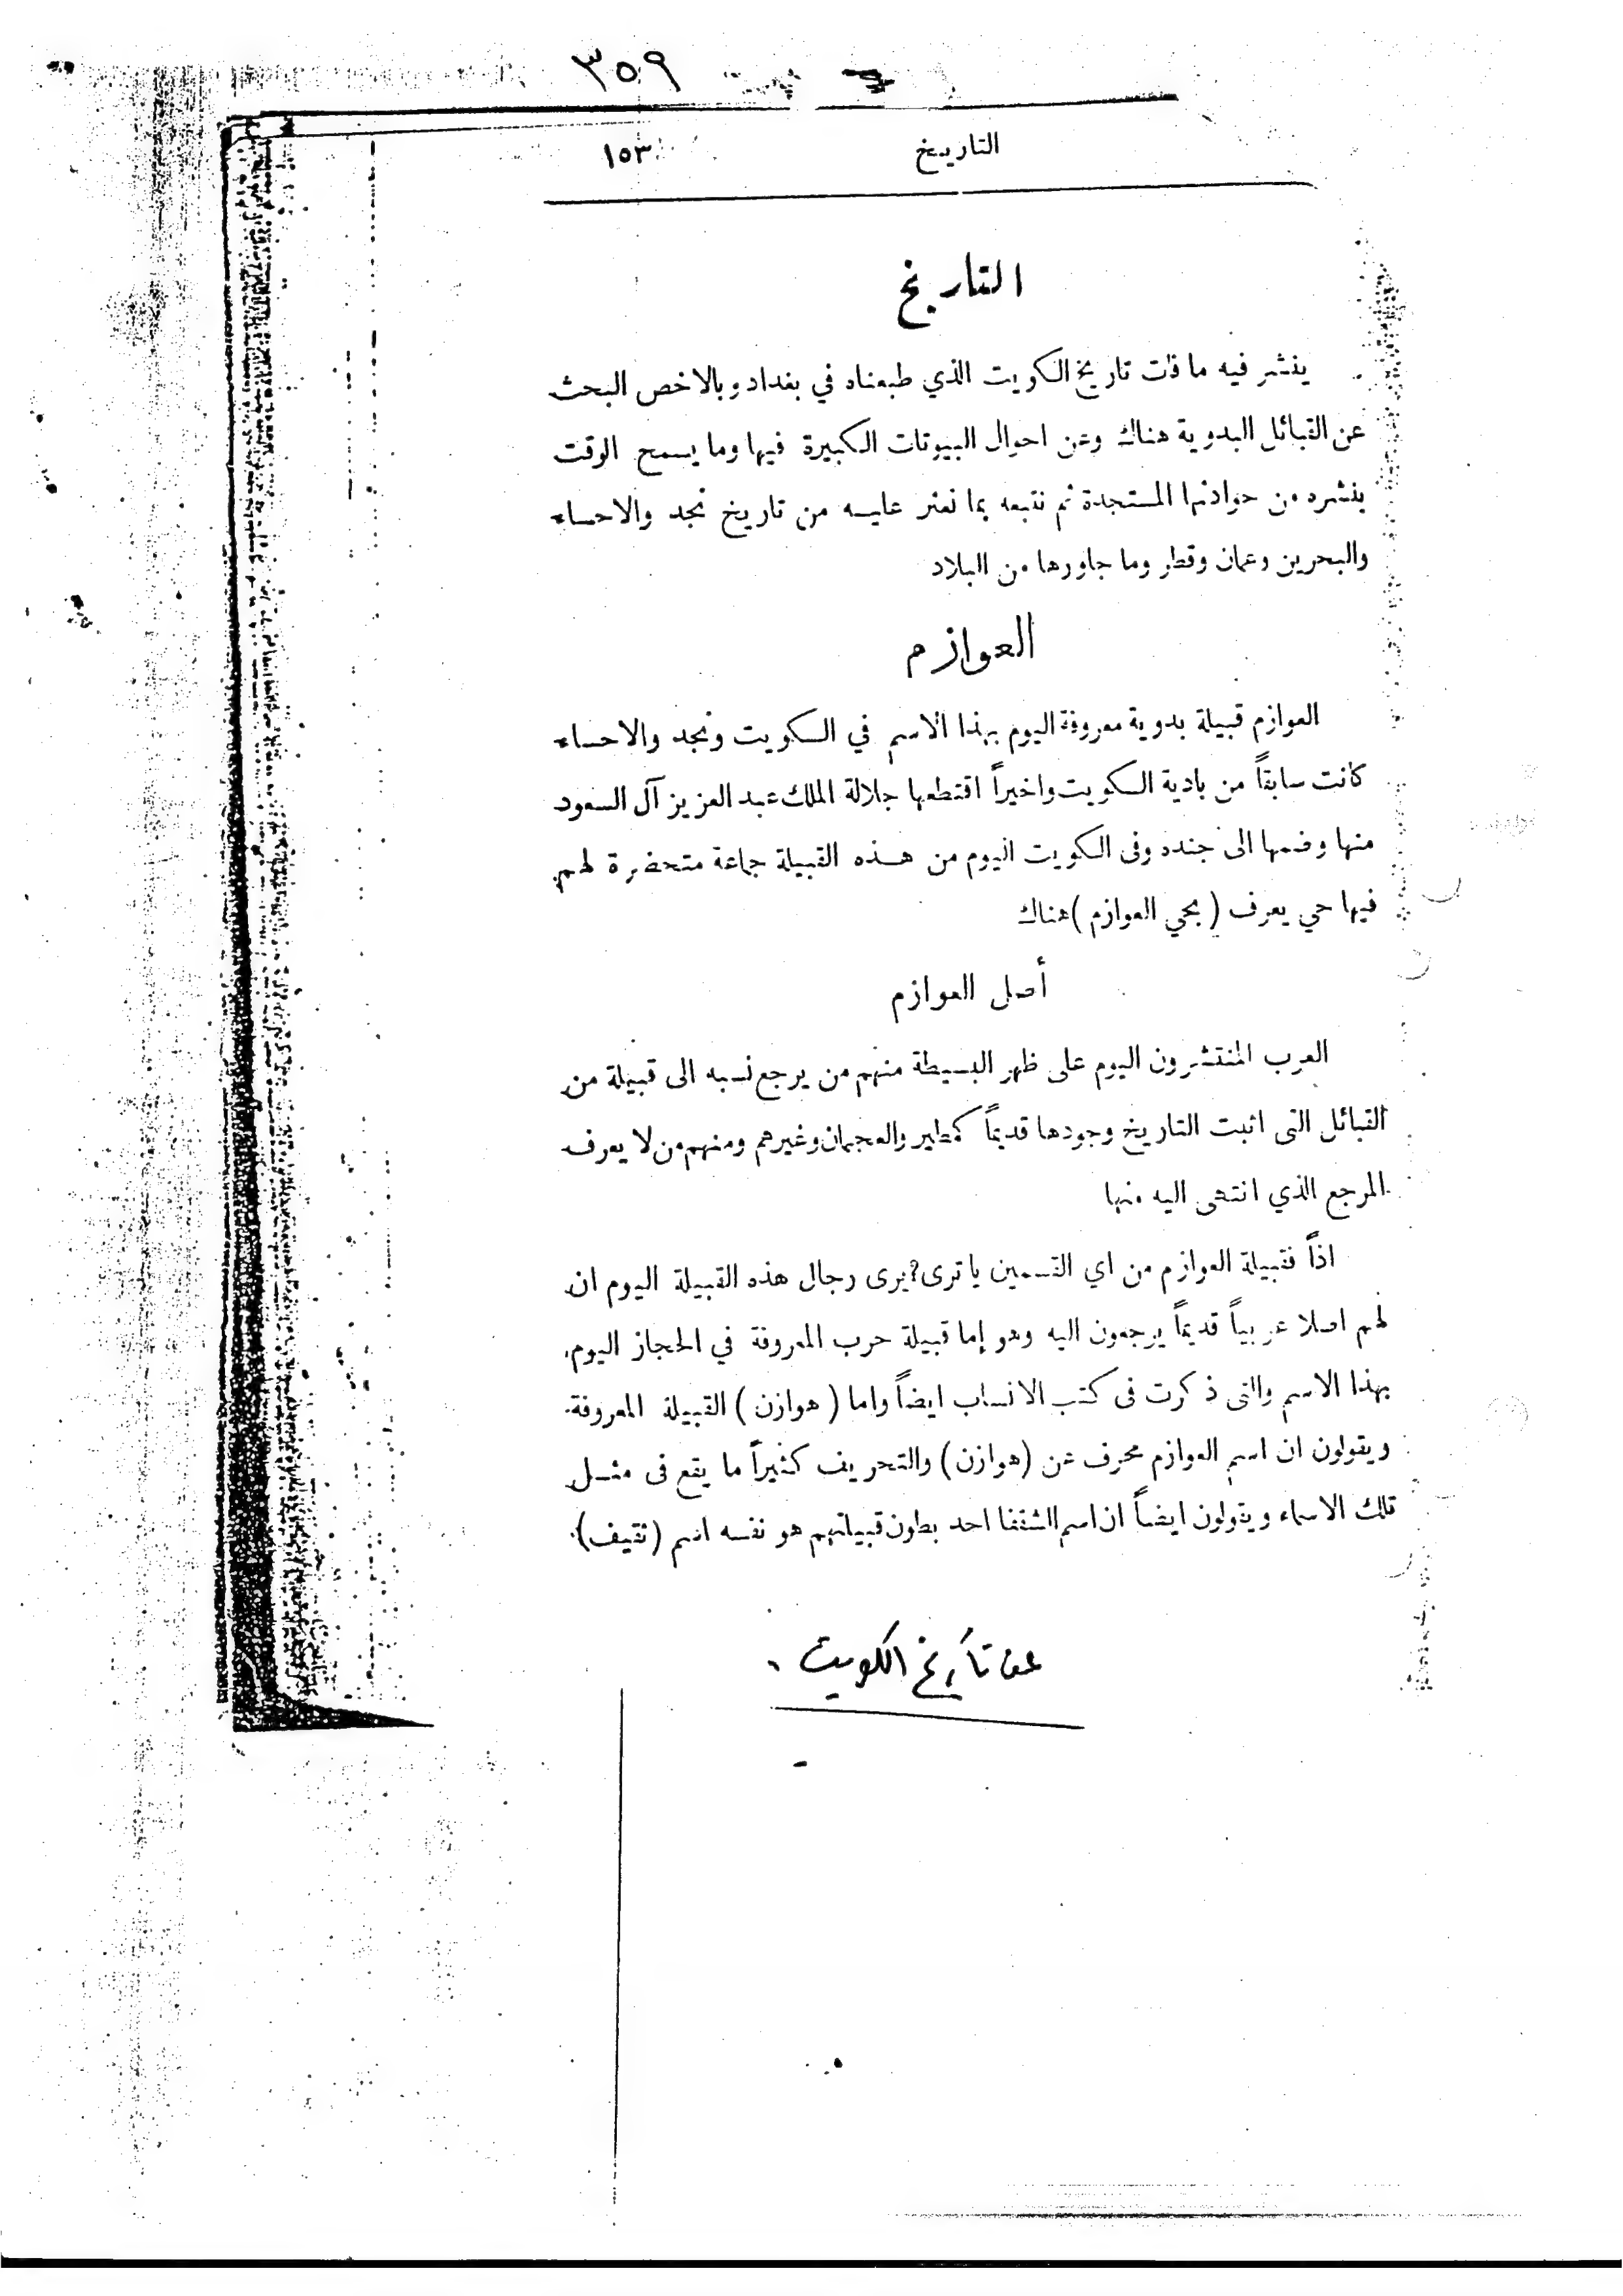 ٣٥٩
التاريخ ١٥٣
التاريخ
ينشر فيه ما فات تاريخ الكويت الذي طبعناه في بغداد وبالاخص البحث
عن القبائل البدوية هناك وعن احوال البيوتات الكبيرة فيها وما يسمح الوقت
بنشره من حوادثها المستجدة ثم نتبعه بما نعثر عليه من تاريخ نجد والاحساء
والبحرين وعمان وقطر وما جاورها من البلاد
العوازم
العوازم قبيلة بدوية معروفة اليوم بهذا الاسم في الكويت ونجد والاحساء
كانت سابقاً من بادية الكويت واخيراً اقتطعها جلالة الملك عبد العزيز آل السعود
منها وضمها الى جنده وفى الكويت اليوم من هذه القبيلة جماعة متحضرة لهم
فيها حي يعرف ( بحي العوازم ) هناك
أصل العوازم
العرب المنتشرون اليوم على ظهر البسيطة منهم من يرجع نسبه الى قبيلة من
القبائل التى اثبت التاريخ وجودها قديماً كمطير والعجمان وغيرهم ومنهم من لا يعرف
المرجع الذي انتهى اليه منها
اذاً فقبيلة العوازم من اي القسمين يا ترى؟ يرى رجال هذه القبيلة اليوم ان
لهم اصلا عربياً قديماً يرجعون اليه وهو إما قبيلة حرب المعروفة في الحجاز اليوم
بهذا الاسم والتى ذكرت فى كتب الانساب ايضاً واما ( هوازن ) القبيلة المعروفة
ويقولون ان اسم العوازم محرف عن (هوازن) والتحريف كثيراً ما يقع فى مثل
تلك الاسماء ويقولون ايضاً ان اسم الشقفا احد بطون قبيلتهم هو نفسه اسم (ثقيف)
عن تأريخ الكويت .